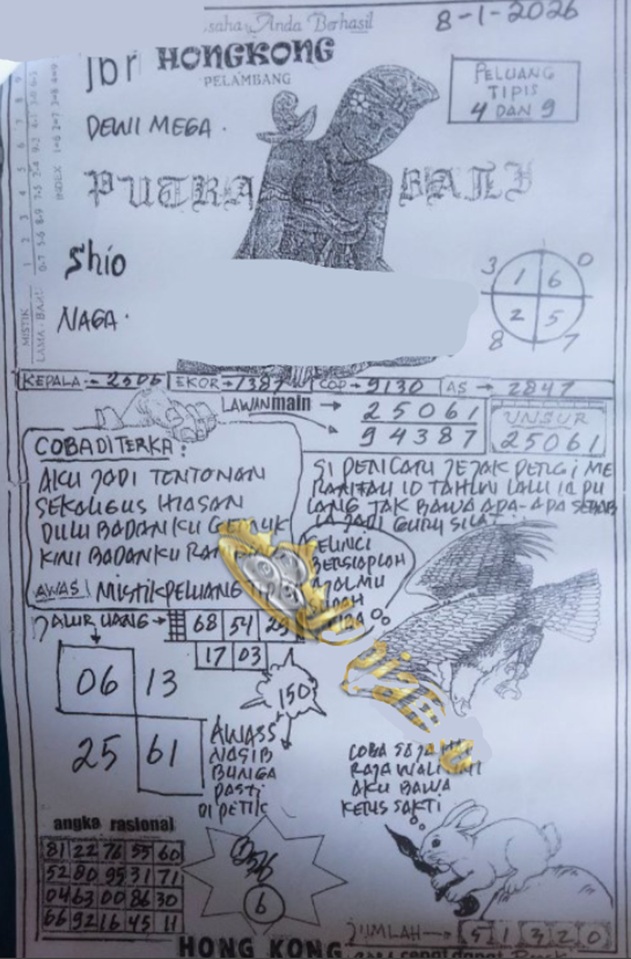 Anda Berhasil
8-1-2026
HONGKONG
PELAMBANG
PELUANG
TIPIS
4 DAN 9
DEWI MEGA.
PUTRA BALI
Shio
NAGA.
MISTIK
LAMA BARU
INDEX
3 1 6 0
8 2 5 7
KEPALA 2506 EKOR 7387 COP 9130 AS 2847
LAWAN main
25061
94387
UNSUR
25061
COBA DITERKA:
AKU JADI TONTONAN
SEKALIGUS HIASAN
DULU BADANKU GEMUK
KINI BADANKU
AWAS! MISTIK PELUANG TIPIS
SI PENCARI JEJAK PERGI ME
RANTAU 10 TAHUN LALU IA PU
LANG TAK BAWA APA-APA SEBAB
IA JADI GURU SILAT.
KELINCI
BERSIAPLAH
AJALMU
SUDAH
TIBA
JALUR UANG 68 54
17 03
06 13
25 61
150
AWASS
NASIB
BUNGA
PASTI
DIPETIK
COBA SAJA
RAJAWALI
AKU BAWA
KERIS SAKTI
angka rasional
81 22 76 55 60
52 80 95 31 71
04 63 00 86 30
66 92 16 45 11
6
JUMLAH 5 1 3 2 0
HONG KONG